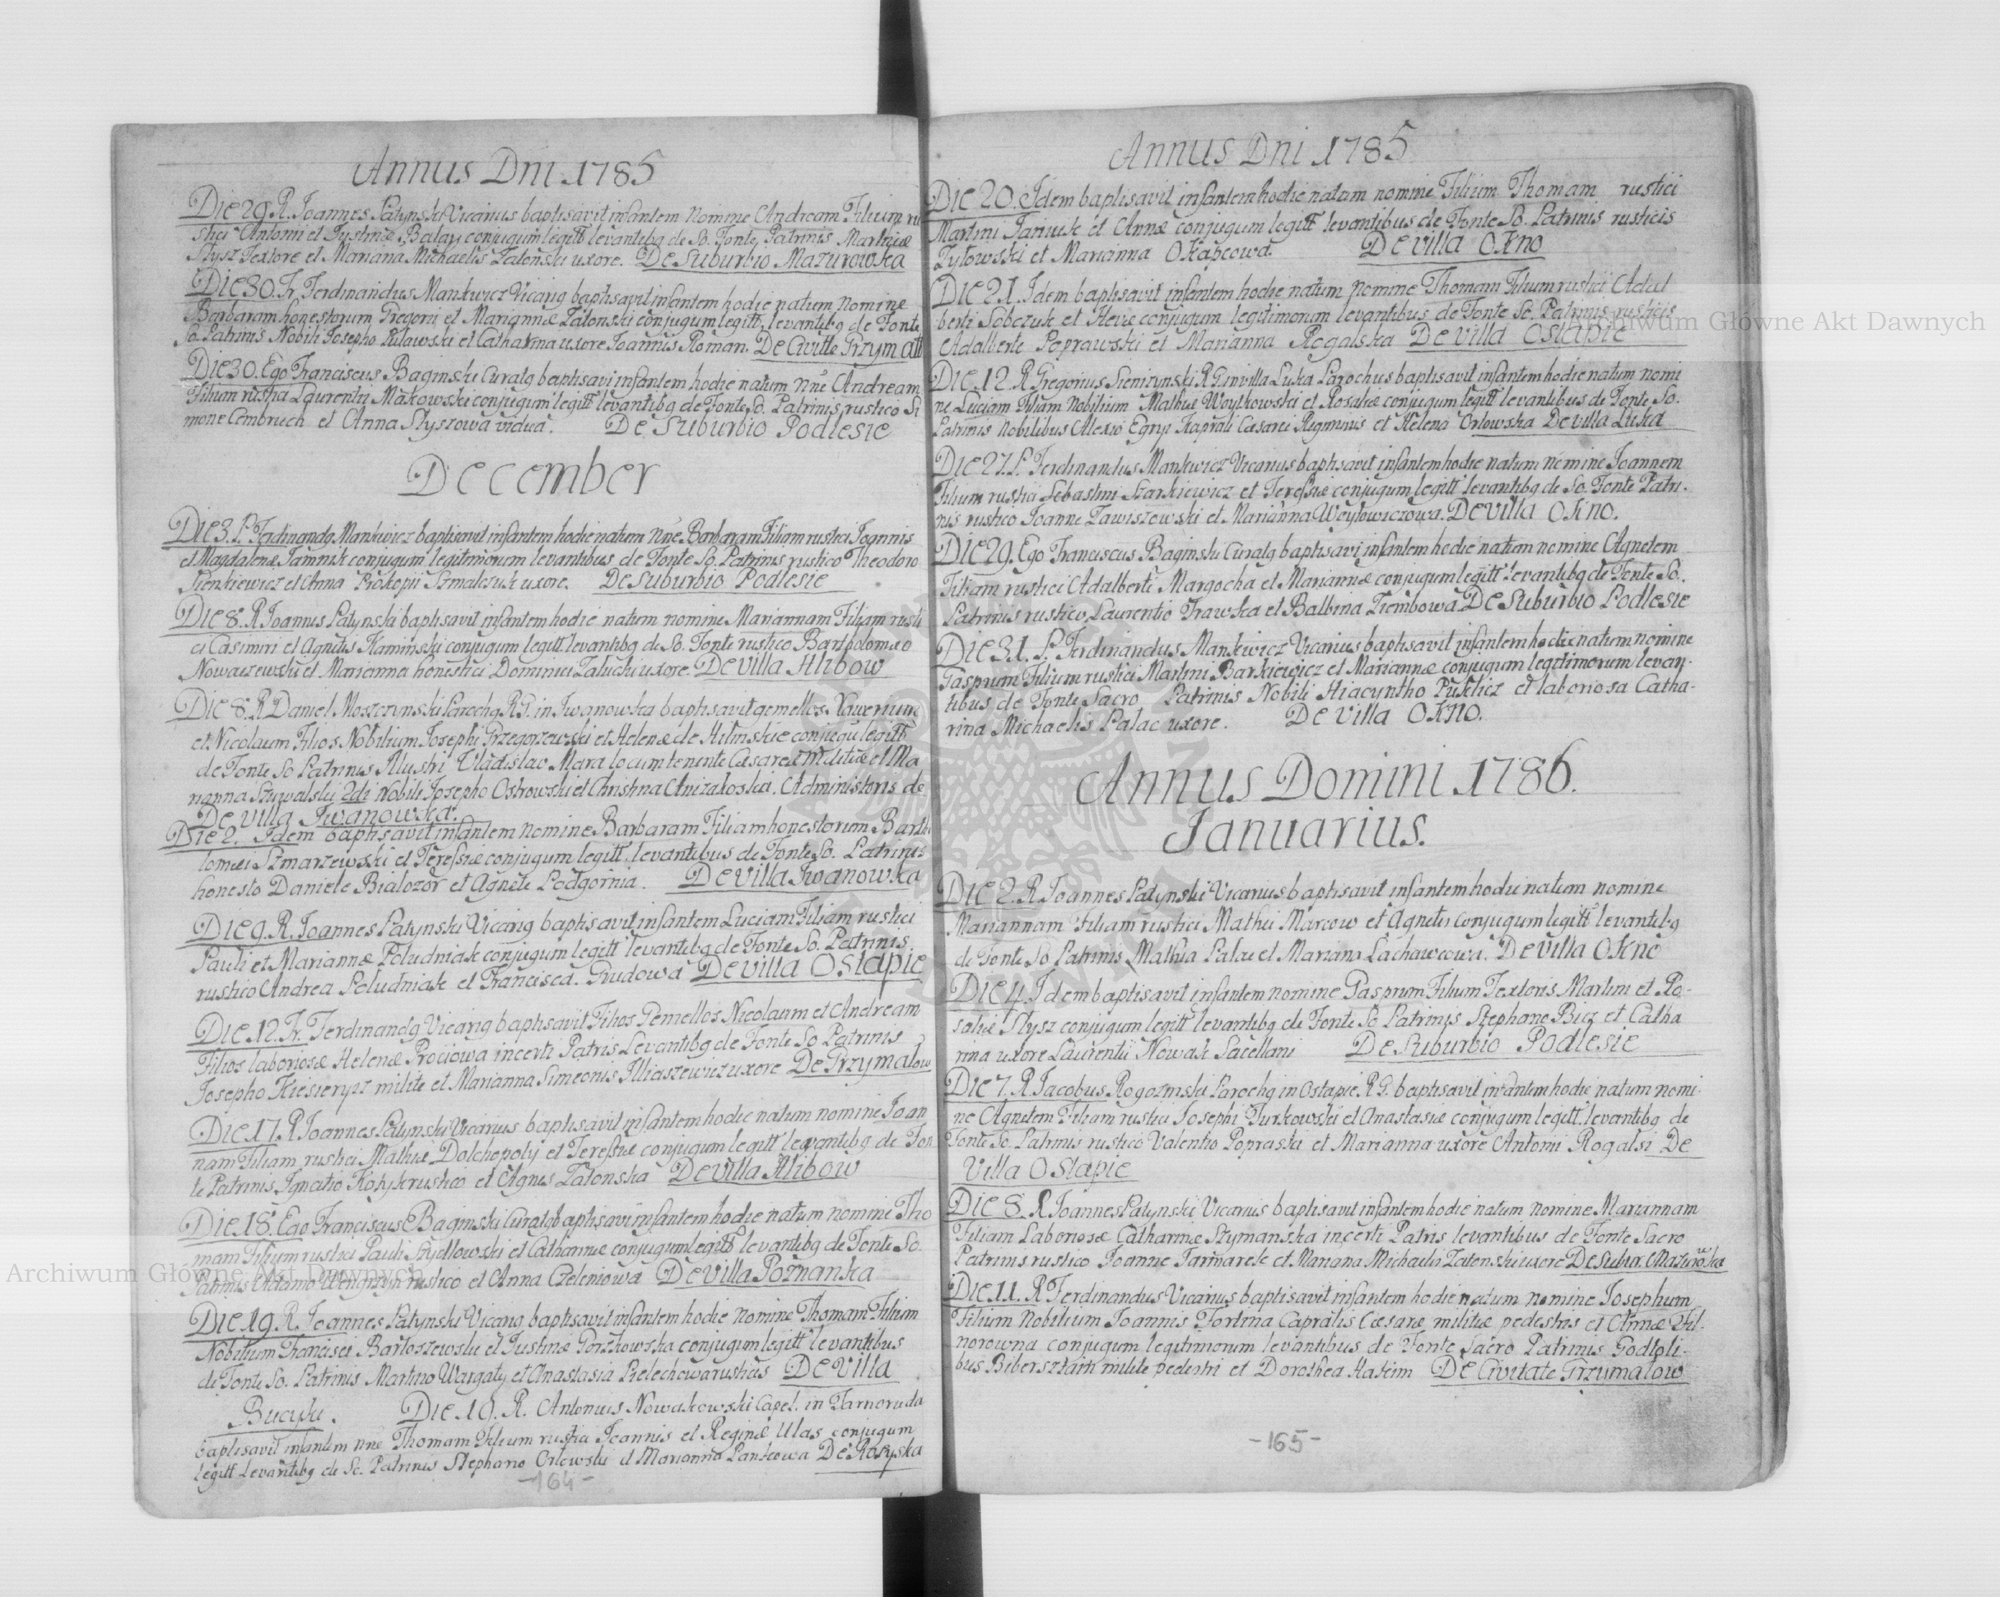 Annus Dni 1785
Die 29. R. Joannes Patynski Vicarius baptisavit infantem nomine Andream Filium ru
stici Antonii et Justinæ Balay conjugum legitt levantibq de So. Fonte Patrinis Martino
Stysz Textore et Mariana Michaelis Zatonski uxore. De Suburbio Mazurowka
Die 30. Fr. Ferdinandus Mankwicz Vicariq baptisavit infantem hodie natum nomine
Barbaram honestorum Gregorii et Mariannæ Zatonski conjugum legitt. levantibq de Fonte
So. Patrinis Nobili Josepho Putowski et Catharina uxore Joannis Roman. De Civitte Grzymatt
Die 30. Ego Franciscus Baginski Curatq baptisavi infantem hodie natum nne Andream
Filium rustici Laurentii Makowski conjugum legitt levantibq de Fonte So. Patrinis rustico Si
mone Cembruch et Anna Styszowa vidua. De Suburbio Podlesie
December
Die 3. P. Ferdinandq Mankiewicz baptisavit infantem hodie natum nne Barbaram Filiam rustici Joannis
et Magdalenæ Tamnik conjugum legitimorum levantibus de Fonte So. Patrinis rustico Theodoro
Sienkiewicz et Anna Prokopii Szmalcuk uxore. De Suburbio Podlesie
Die 8. R. Joannes Patynski baptisavit infantem hodie natum nomine Mariannam Filiam rusti
ci Casimiri et Agnetis Kaminski conjugum legitt levantibq de So. Fonte rustico Bartholomæo
Nowaszewski et Marianna honestici Dominici Zaluski uxore. De Villa Hlibow
Die 8. R. Daniel Moszczynski Parochq R.G. in Iwanowska baptisavit gemellos Xaverium
et Nicolaum Filios Nobilium Josephi Grzegorzewski et Helenæ de Hilinskie conjugu legitt
de Fonte So Patrinis Illustri Vladislao Mara locumtenente Cæsareæ Militiæ et Ma
rianna Szywalski 2di Nobili Josepho Ostrowski et Christina Anizakoska. Administoris de
De Villa Iwanowska.
Die 2. Idem baptisavit infantem nomine Barbaram Filiam honestorum Barth
lomæi Szmarzewski et Teressiæ conjugum legitt. levantibus de Fonte So. Patrinis
honesto Daniele Bialozor et Agnete Podgornia. De Villa Iwanowka
Die 9. R. Joannes Patynski Vicariq baptisavit infantem Luciam Filiam rustici
Pauli et Mariannæ Poludniak conjugum legitt levantibq de Fonte So. Patrinis
rustico Andrea Poludniak et Francisca. Grudowa De Villa Ostapie
Die 12. Fr. Ferdinandq Vicariq baptisavit Filios Gemellos Nicolaum et Andream
Filios laboriosæ Helenæ Prociowa incerti Patris Levantibq de Fonte So Patrinis
Josepho Kiesierysz milite et Marianna Simeonis Illiaszewicz uxore De Grzymalow
Die 17. R Joannes Patynski Vicarius baptisavit infantem hodie natum nomine Joan
nam Filiam rustici Mathiæ Dolchopoly et Teressiæ conjugum legitt levantibq de Fon
te Patrinis Ignatio Kotyk rustico et Agnes Zatonska De Villa Hlibow
Die 18. Ego Franciscus Baginski Curatq baptisavi infantem hodie natum nomine Tho
mam Filium rustici Pauli Szydlowski et Catharinæ conjugum legitt levantibq de Fonte So.
Patrinis Adamo Wengrzyn rustico et Anna Czeleniowa De Villa Poznanka
Die 19. R. Joannes Patynski Vicariq baptisavit infantem hodie nomine Thomam Filium
Nobilium Francisci Bartoszewski et Justinæ Gorzkowska conjugum legitt levantibus
de Fonte So. Patrinis Martino Wargaty et Anastasia Prelechowa rusticis De Villa
Bucyki. Die 19. R. Antonius Nowakowski Capel. in Tarnoruda
baptisavit infantem nne Thomam Filium rustici Joannis et Reginæ Ulas conjugum
legitt levantibq de So. Patrinis Stephano Orlowski et Marianna Pankowa De Rosyska
-164-
Annus Dni 1785
Die 20. Idem baptisavit infantem hodie natum nomine Filium Thomam rustici
Martini Fariuk et Annæ conjugum legitt levantibus de Fonte So. Patrinis rusticis
Zylowski et Marianna Okapcowa. De Villa Okno
Die 21. Idem baptisavit infantem hodie natum nomine Thomam Filium rustici Adal
berti Sobczuk et Hevæ conjugum legitimorum levantibus de Fonte So. Patrinis rusticis
Adalberto Poprawski et Marianna Rogalska De Villa Ostapie
Die 12. R Gregorius Sieniczynski R G in villa Luka Parochus baptisavit infantem hodie natum nomi
ne Luciam Filiam Nobilium Mathiæ Woytkowski et Rosaliæ conjugum legitt levantibus de Fonte So.
Patrinis Nobilibus Alexio Egryi Kaprali Cæsarei Regiminis et Helena Orlowska De Villa Luka
Die 27. P. Ferdinandus Mankiewicz Vicarius baptisavit infantem hodie natum nomine Joannem
Filium rustici Sebastini Szarkiewicz et Teressiæ conjugum legitt levantibq de So. Fonte Patri-
nis rustico Joanne Zawiszowski et Marianna Woytowiczowa. De Villa Okno.
Die 29. Ego Franciscus Baginski Curatq baptisavi infantem hodie natam nomine Agnetem
Filiam rustici Adalberti Margocha et Mariannæ conjugum legitt levantibq de Fonte So.
Patrinis rustico Laurentio Trawska et Balbina Ziembowa De Suburbio Podlesie
Die 31. P. Ferdinandus Mankiewicz Vicarius baptisavit infantem hodie natum nomine
Gasprum Filium rustici Martini Barkiewicz et Mariannæ conjugum legitimorum levan-
tibus de Fonte Sacro Patrinis Nobili Hiacyntho Puklicz et laboriosa Catha-
rina Michaelis Palac uxore. De Villa Okno.
Annus Domini 1786.
Januarius.
Die 2. R Joannes Patynski Vicarius baptisavit infantem hodie natum nomine
Mariannam Filiam rustici Mathei Marcow et Agnetis conjugum legitt levantibq
de Fonte So Patrinis Mathia Palac et Mariana Lachawcowa. De Villa Okno
Die 4. Idem baptisavit infantem nomine Gasprum Filium Textoris Martini et Ro-
saliæ Stysz conjugum legitt levantibq de Fonte So Patrinis Stephano Bicz et Catha
rina uxore Laurentii Nowak Sacellani De Suburbio Podlesie
Die 7. R Jacobus Rogozinski Parochq in Ostapie. R G. baptisavit infantem hodie natum nomi-
ne Agnetem Filiam rustici Josephi Turkowski et Anastasiæ conjugum legitt. levantibq de
Fonte So. Patrinis rustico Valentio Popraski et Marianna uxore Antonii Rogalsi De
Villa Ostapie
Die 8. R Joannes Patynski Vicarius baptisavit infantem hodie natum nomine Mariannam
Filiam Laboriosæ Catharinæ Szymanska incerti Patris levantibus de Fonte Sacro
Patrinis rustico Joanne Jarmarek et Mariana Michaelis Zatonski uxore De Subur. Mazurowka
Die 11. R Ferdinandus Vicarius baptisavit infantem hodie natum nomine Josephum
Filium Nobilium Joannis Fortina Capralis Cæsareæ militiæ pedestris et Annæ Fil-
norowna conjugum legitimorum levantibus de Fonte Sacro Patrinis Godlpli-
bus Bibersztain milite pedestri et Dorothea Hakiim De Civitate Grzymalow
-165-
Archiwum Główne Akt Dawnych
Archiwum Główne Akt Dawnych